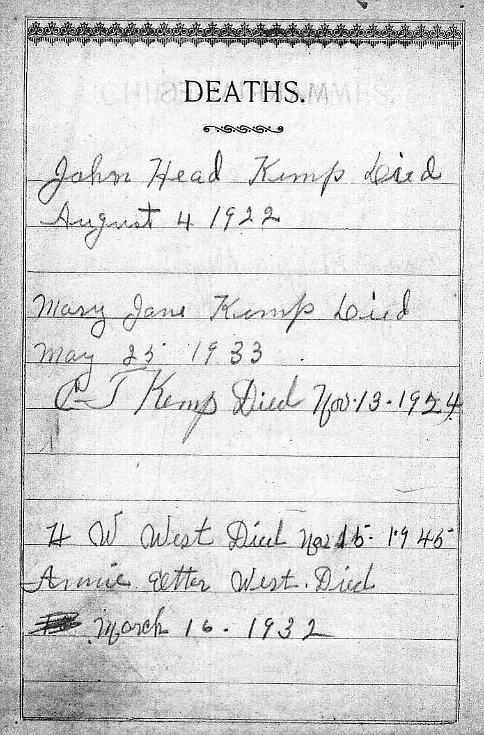 DEATHS.
John Head Kemp Died
August 4 1922
Mary Jane Kemp Died
May 25 1933
Kemp Died Nov. 13 - 1924
H W West Died 15 - 1945
Annie Etter West. Died
March 16 - 1932